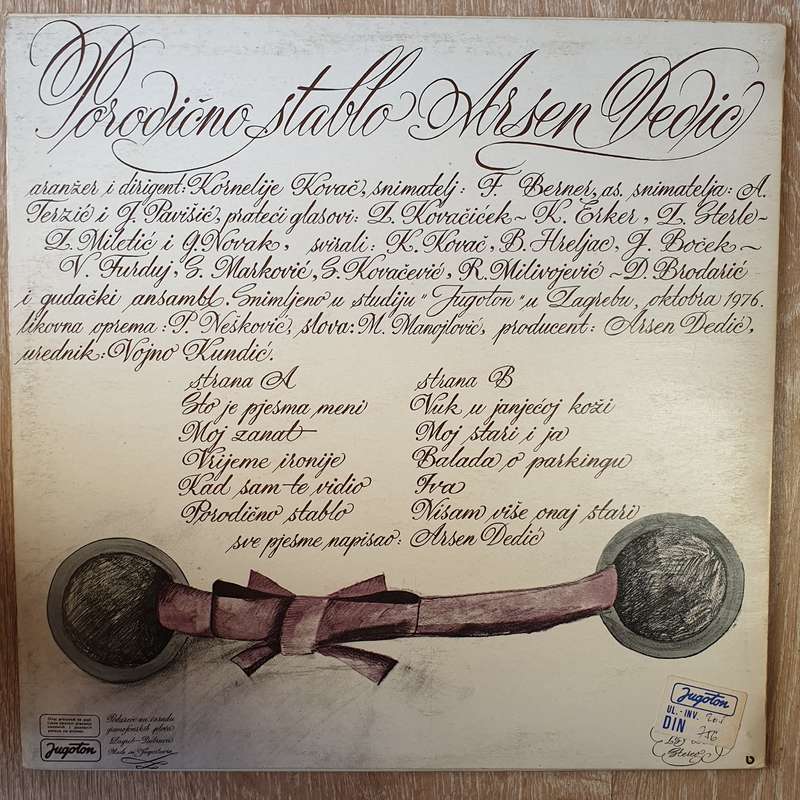 Porodično stablo Arsen Dedić
aranžer i dirigent: Kornelije Kovač, snimatelj: F. Berner, as. snimatelja: A.
Terzić i J. Pavišić, prateći glasovi: Z. Kovačiček ~ K. Erker, Z. Sterle ~
Z. Miletić i G. Novak, svirali: K. Kovač, B. Hreljac, J. Boček ~
V. Furduj, S. Marković, S. Kovačević, R. Milivojević ~ D. Brodarić
i gudački ansambl. Snimljeno u studiju "Jugoton" u Zagrebu, oktobra 1976.
likovna oprema: P. Nešković, slova: M. Manojlović, producent: Arsen Dedić,
urednik: Vojno Kundić.
strana A
Što je pjesma meni
Moj zanat
Vrijeme ironije
Kad sam te vidio
Porodično stablo
strana B
Vuk u janjećoj koži
Moj stari i ja
Balada o parkingu
Iva
Nisam više onaj stari
sve pjesme napisao: Arsen Dedić
Jugoton
gramofonskih ploča
Zagreb-Dubrava
Made in Yugoslavia
Jugoton
UL.-INV.
DIN 756
Stereo